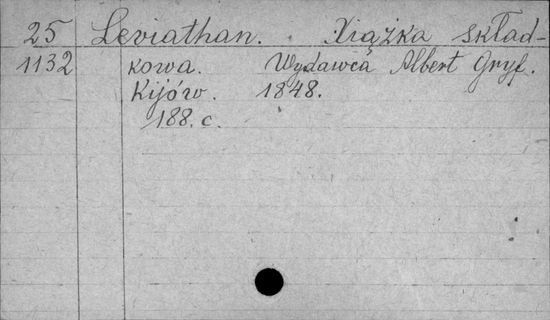 25 Leviathan. Xiążka skład-
1132 kowa. Wydawca Albert Gryf.
Kijów. 1848.
188. c.